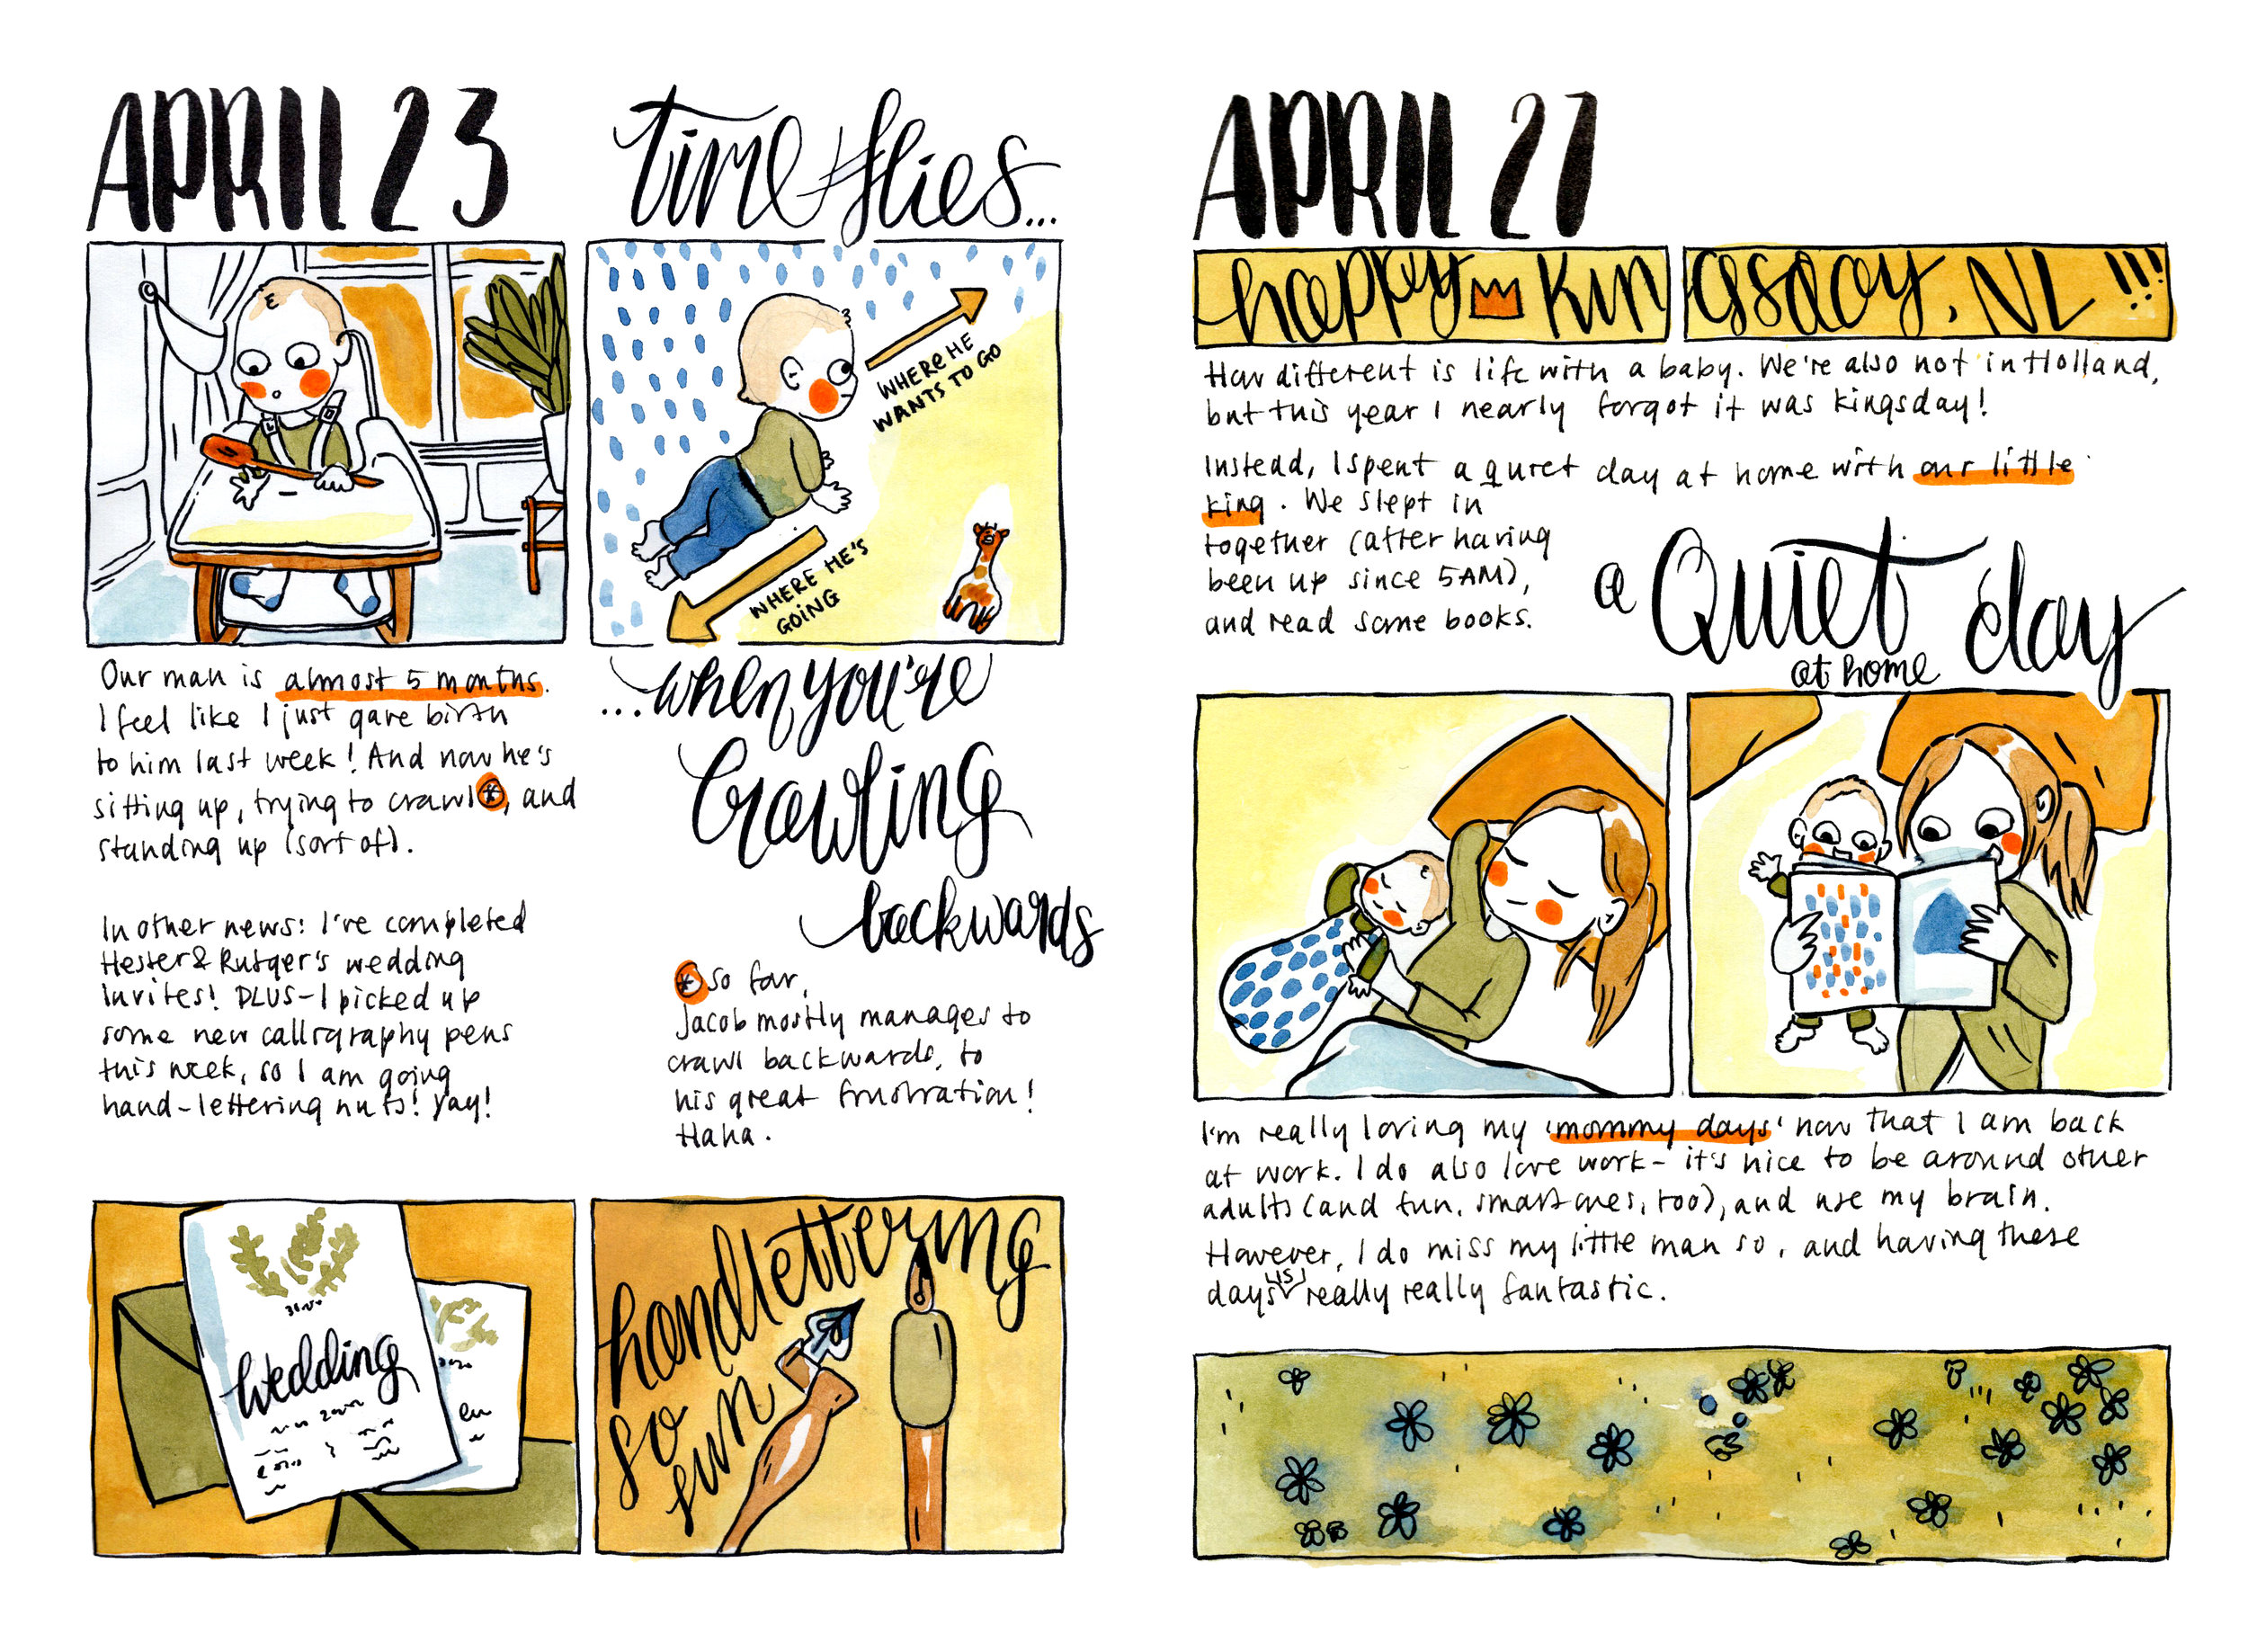 APRIL 23
time flies...
WHERE HE
WANTS TO GO
WHERE HE'S
GOING
Our man is almost 5 months.
I feel like I just gave birth
to him last week! And now he's
sitting up, trying to crawl*, and
standing up (sort of).
...when you're
Crawling
backwards
In other news: I've completed
Hester & Rutger's wedding
invites! PLUS - I picked up
some new calligraphy pens
this week, so I am going
hand-lettering nuts! Yay!
* So far,
Jacob mostly manages to
crawl backwards, to
his great frustration!
Haha.
wedding
handlettering
so
fun
APRIL 27
happy Kingsday, NL!!!
How different is life with a baby. We're also not in Holland,
but this year I nearly forgot it was kingsday!
Instead, I spent a quiet day at home with our little
king. We slept in
together (after having
been up since 5AM),
and read some books.
a Quiet day
at home
I'm really loving my 'mommy days' now that I am back
at work. I do also love work - it's nice to be around other
adults (and fun, smart ones, too), and use my brain.
However, I do miss my little man so, and having these
days is really really fantastic.